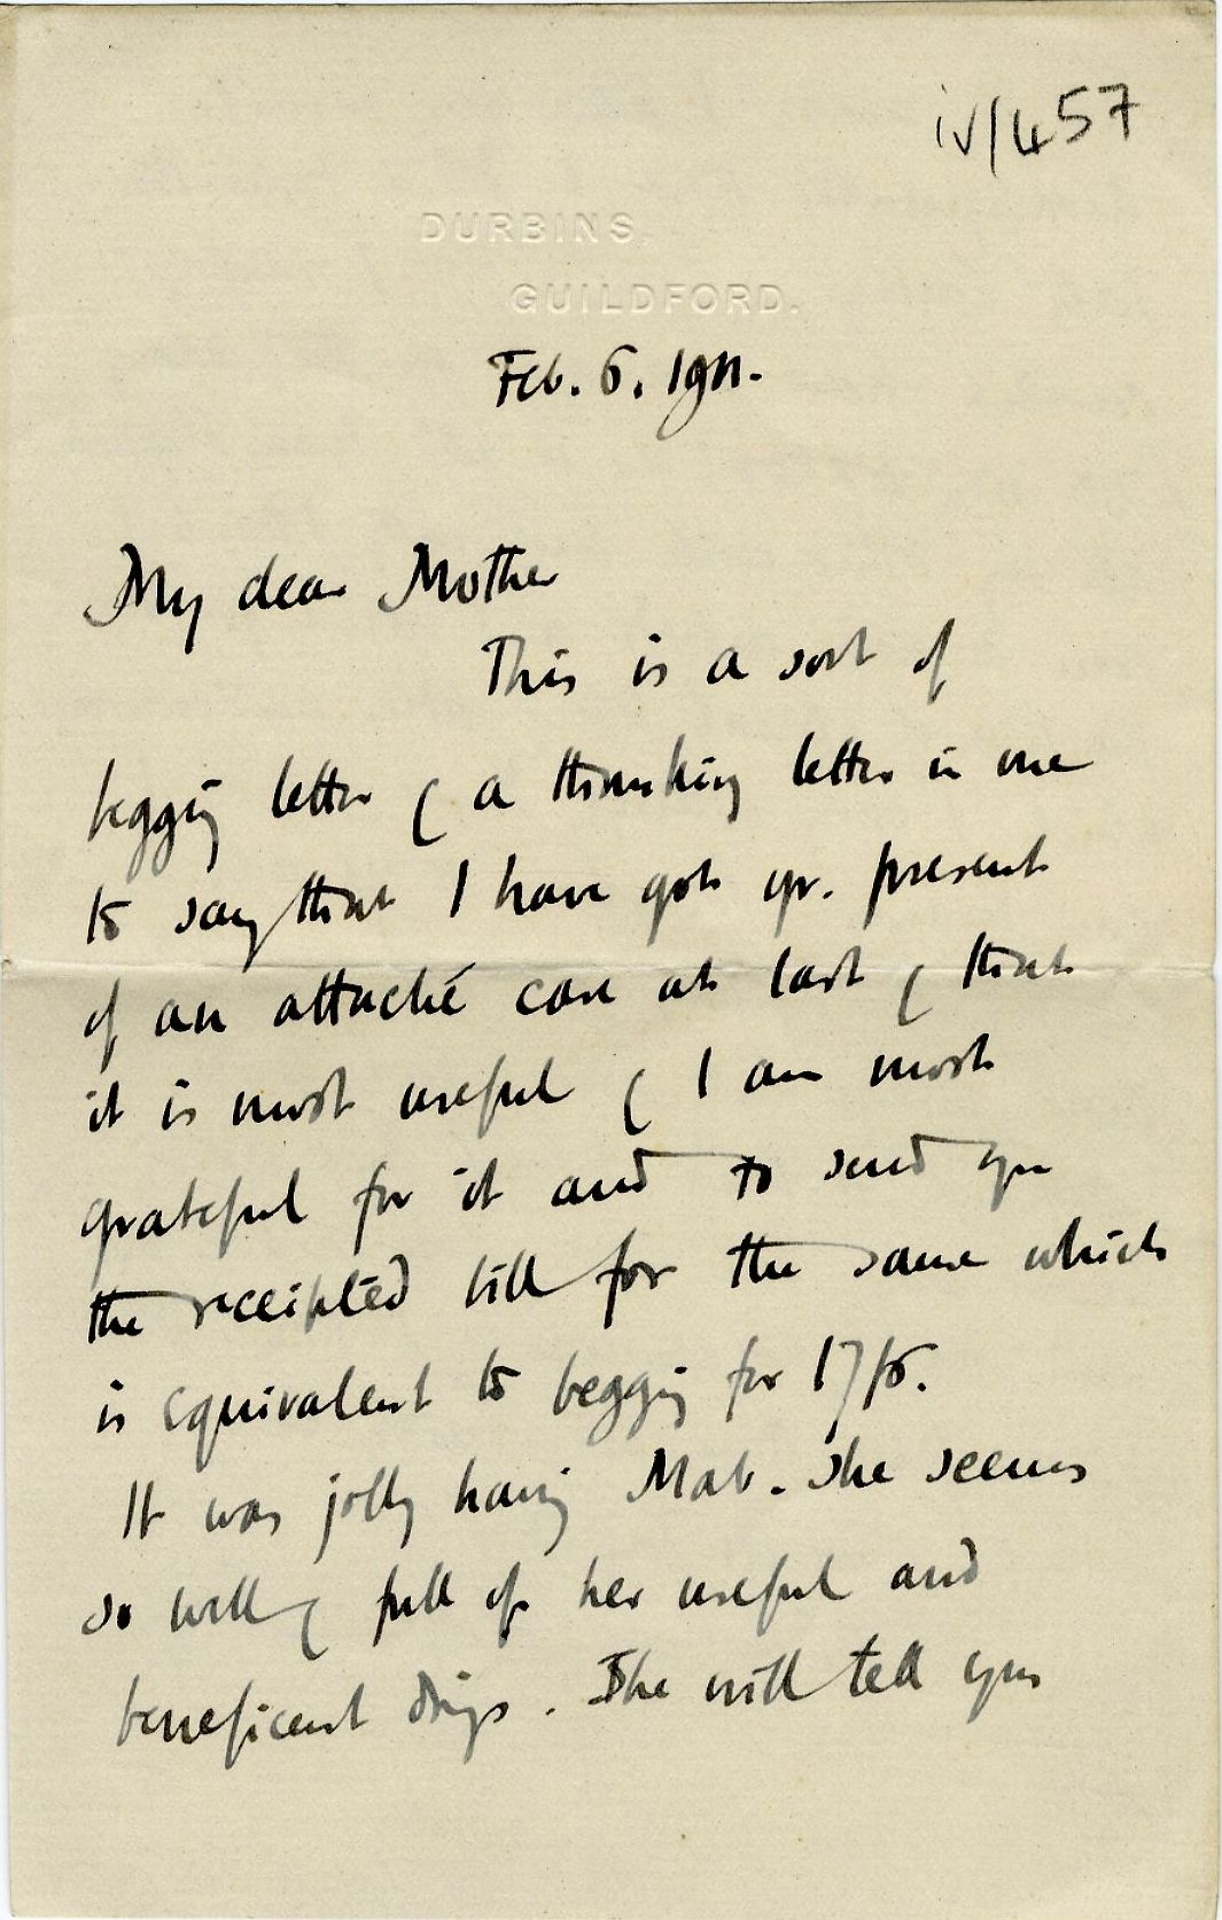 iv/457
DURBINS,
GUILDFORD.
Feb. 6. 1911.
My dear Mother
This is a sort of
begging letter & a thanking letter in one
to say that I have got yr. present
of an attaché case at last & that
it is most useful & I am most
grateful for it and to send you
the receipted bill for the same which
is equivalent to begging for 17/6.
It was jolly having Mab. She seems
so well & full of her useful and
beneficent doings. She will tell you